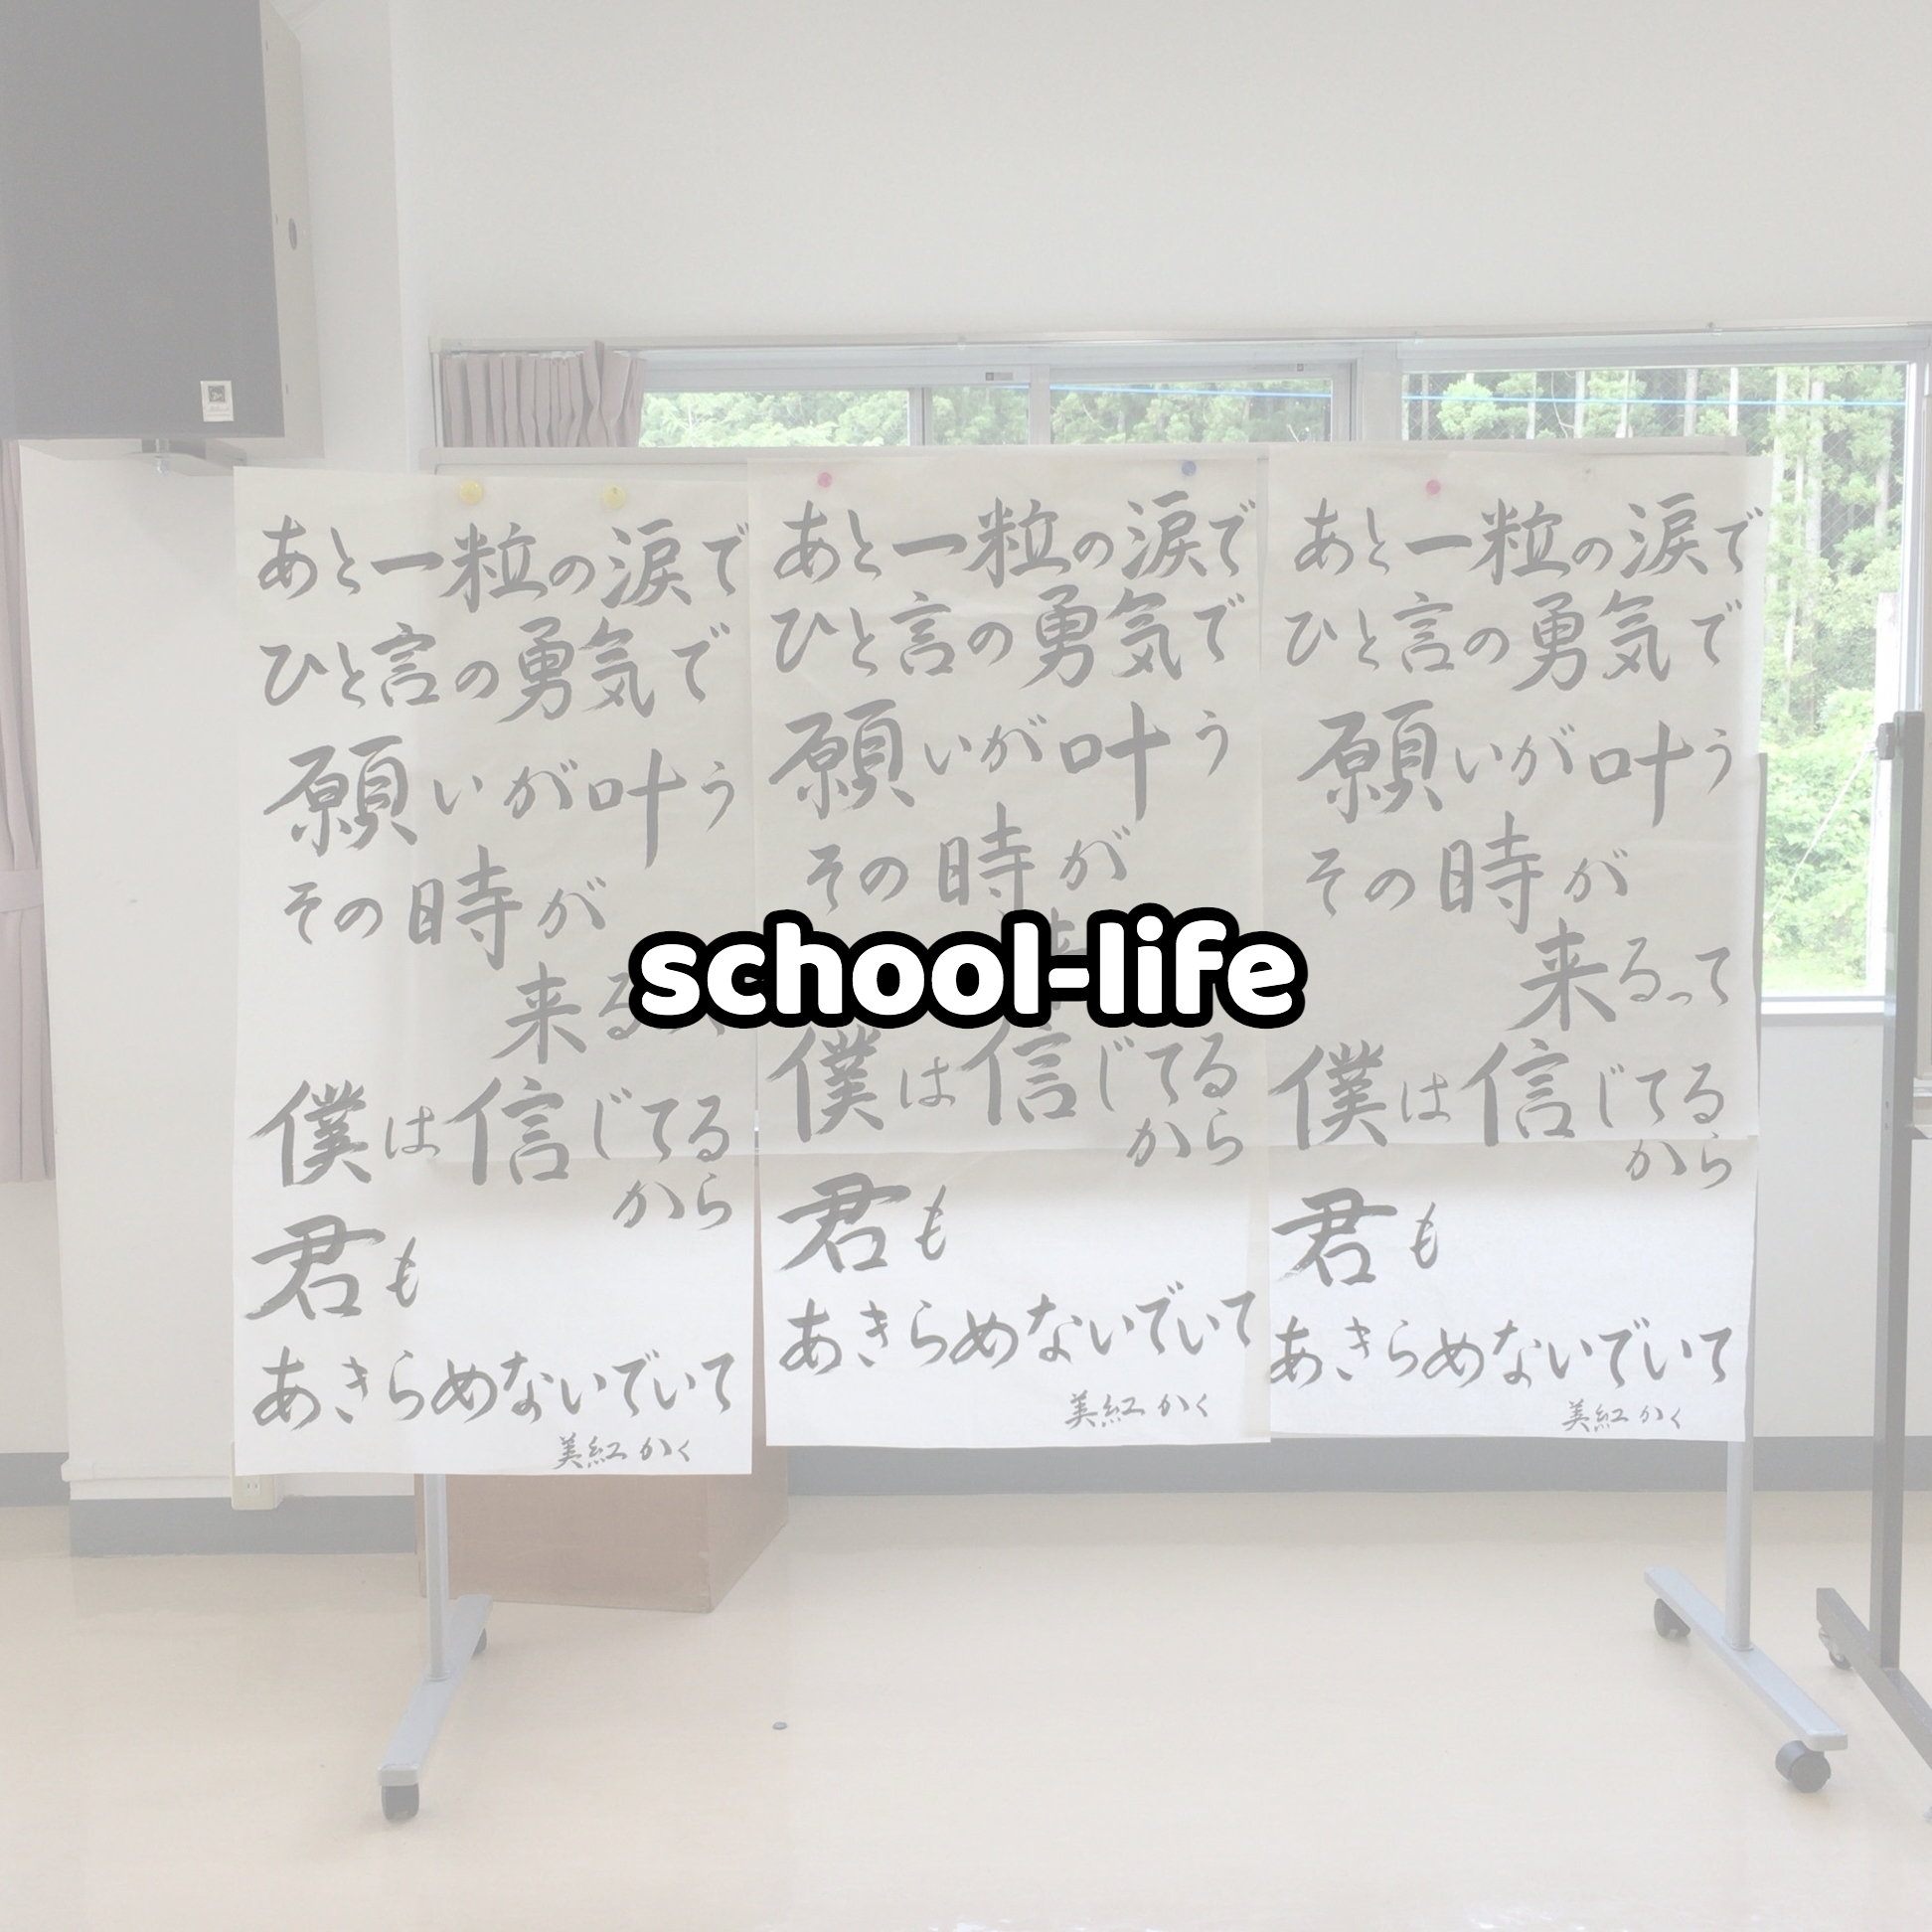 あと一粒の涙で
ひと言の勇気で
願いが叶う
その時が
来る
僕は信じてる
から
君も
あきらめないでいて
美紅かく
あと一粒の涙で
ひと言の勇気で
願いが叶う
その時が
僕は信じてる
から
君も
あきらめないでいて
美紅かく
あと一粒の涙で
ひと言の勇気で
願いが叶う
その時が
来るって
僕は信じてる
から
君も
あきらめないでいて
美紅かく
school-life